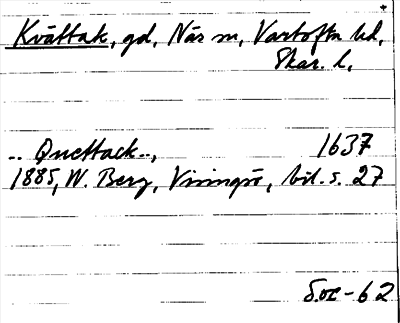 Kvättak, gd, Näs sn, Vartofta hd,
Skar. l.
.. Quettack..,  1637
1885, W. Berg, Visingsö, bil. s. 27
Soc-62